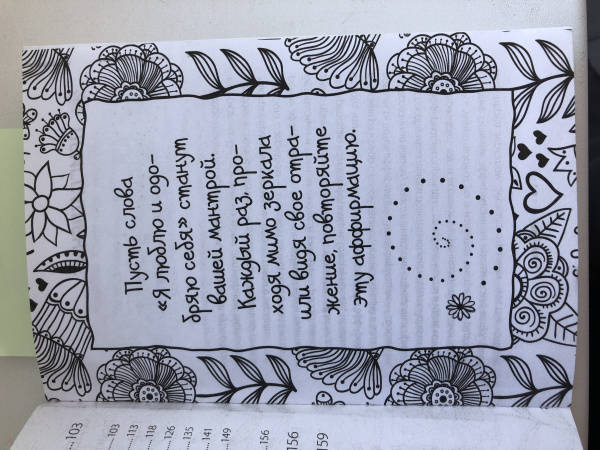 Пусть слова
«Я люблю и одо-
бряю себя» станут
вашей мантрой.
Каждый раз, про-
ходя мимо зеркала
или видя свое отра-
жение, повторяйте
эту аффирмацию.
....103
....103
....113
....118
....126
....135
....141
....149
....156
156
159